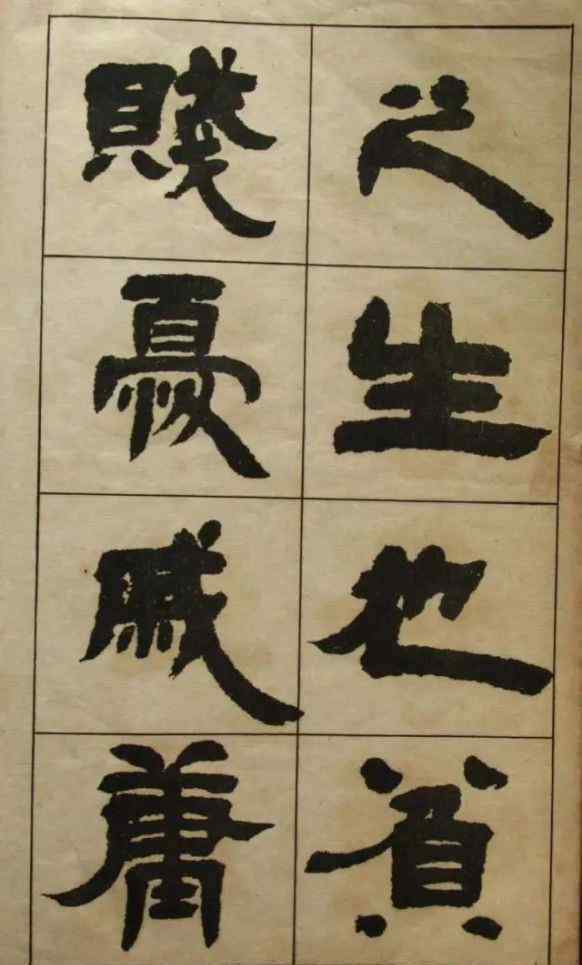 之生也貧
賤憂戚庸